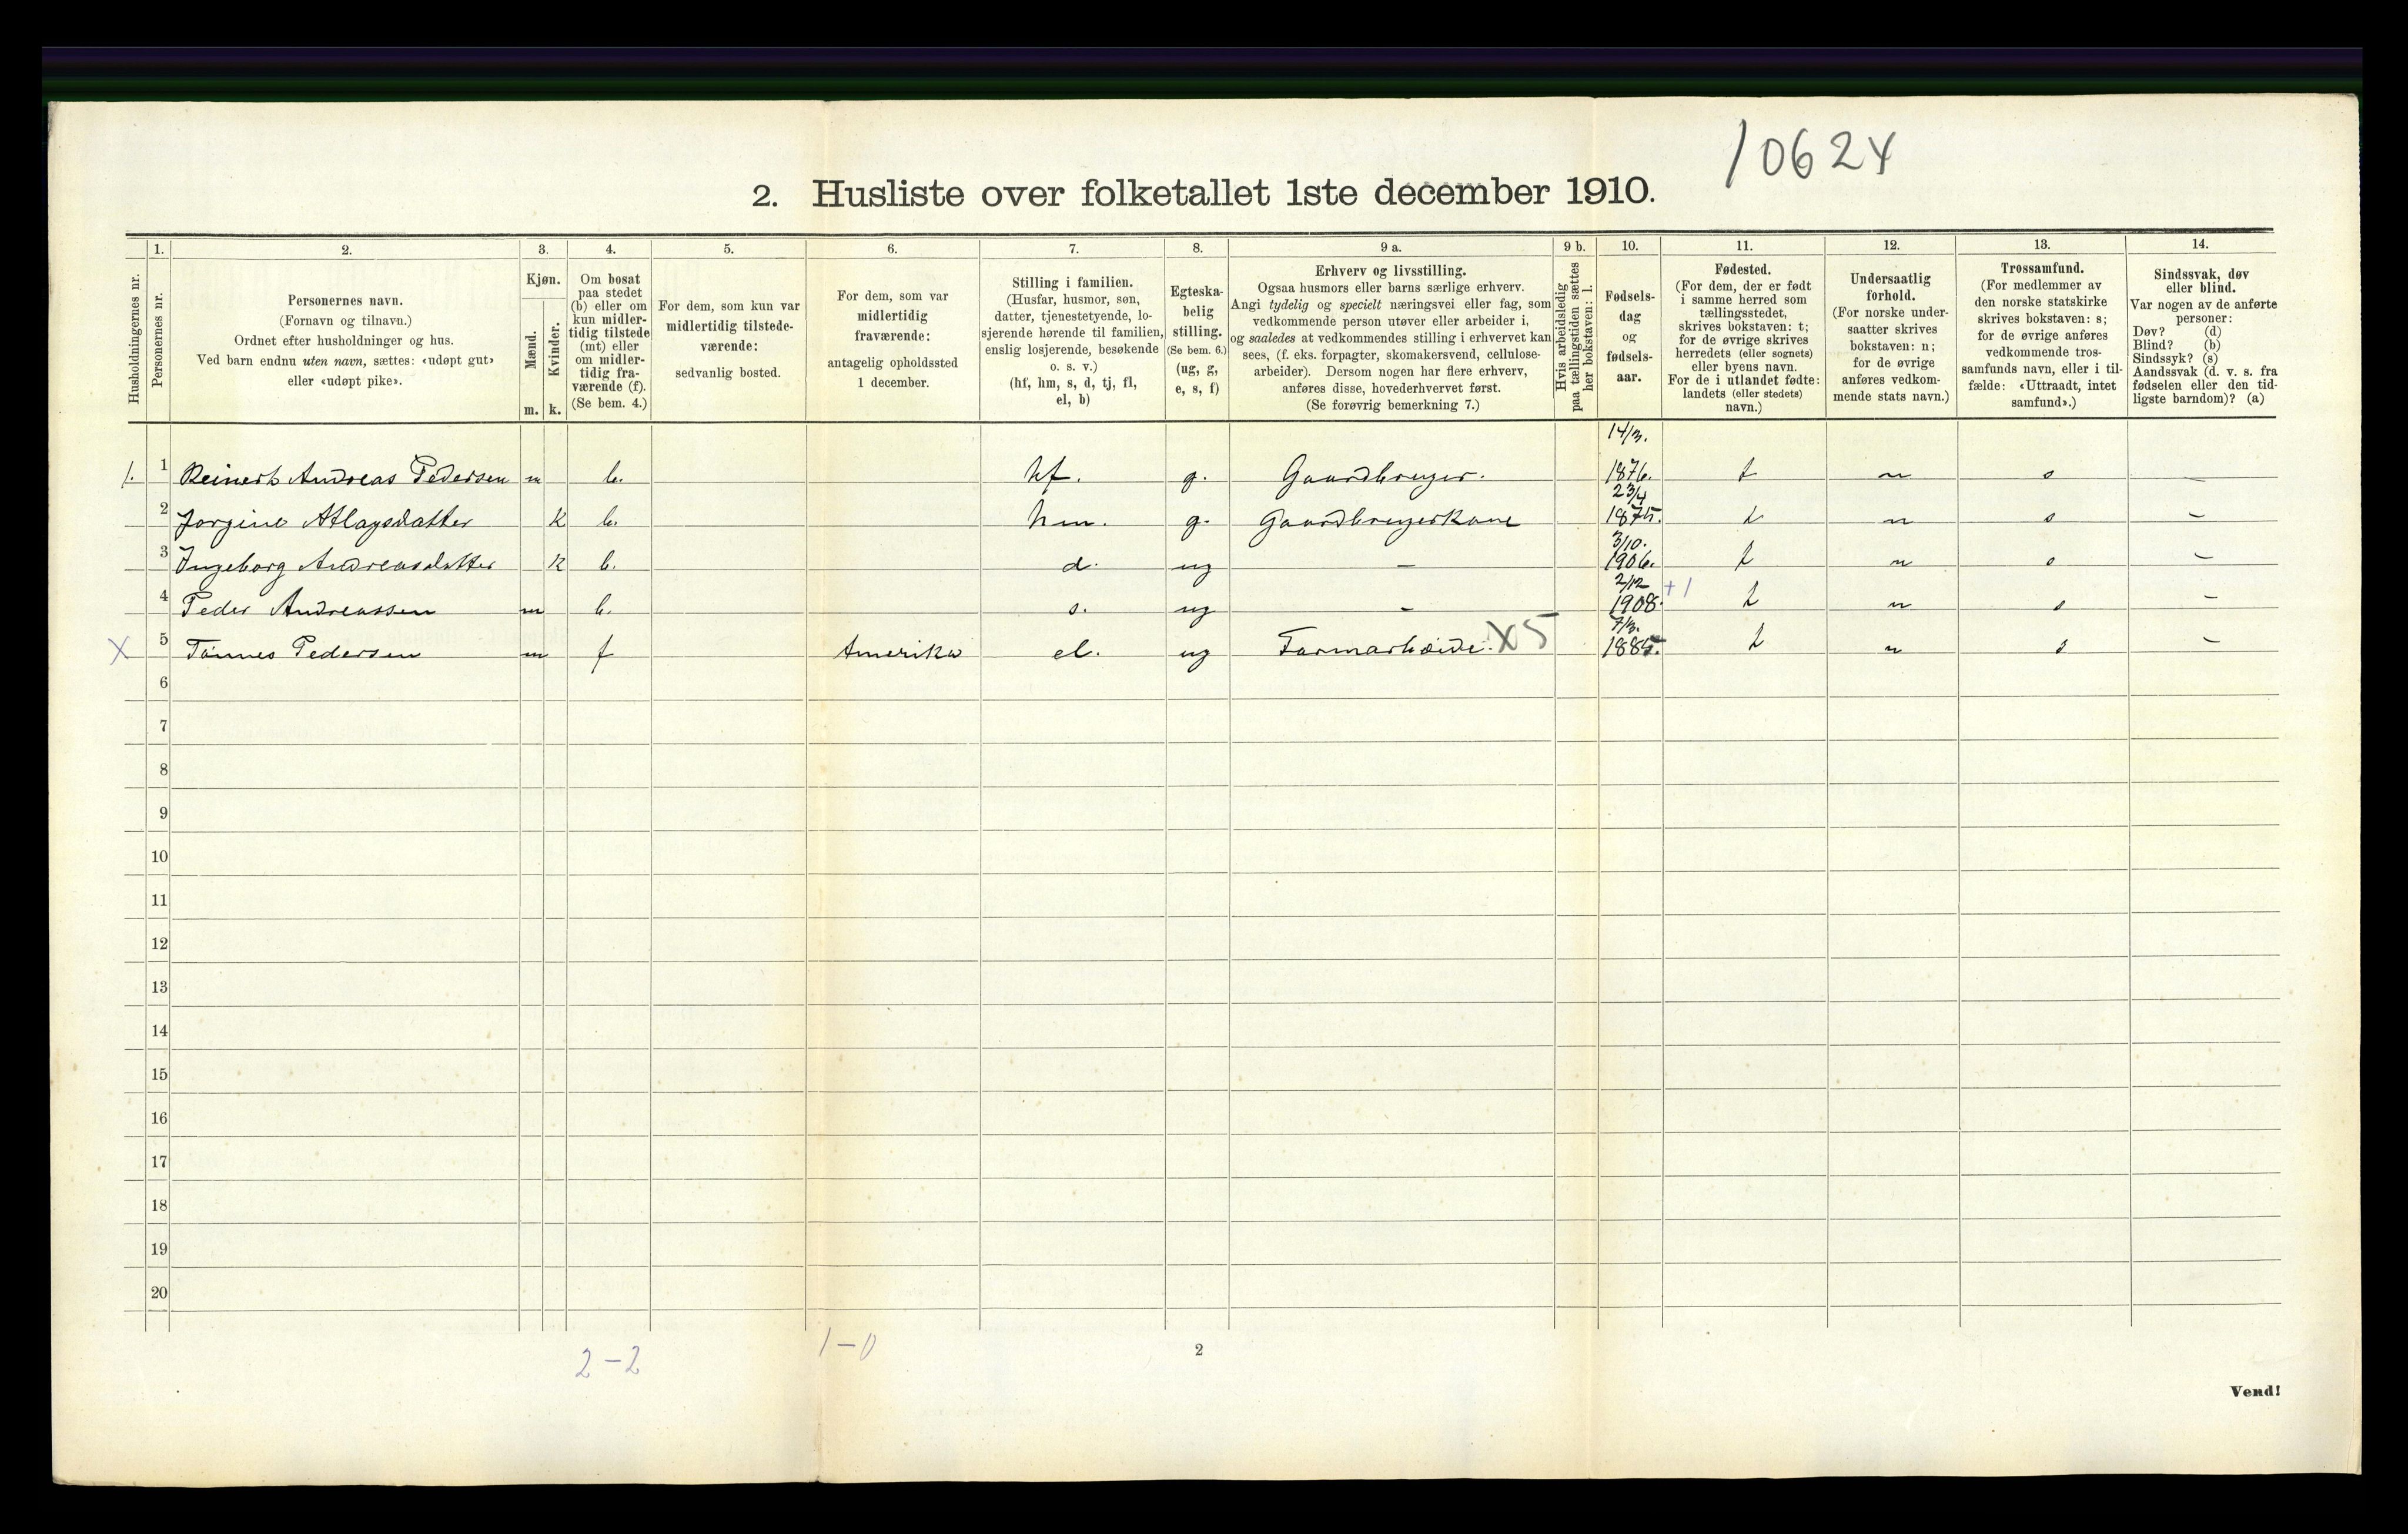 10624
2. Husliste over folketallet 1ste december 1910.
1. 2. 3. 4. 5. 6. 7. 8. 9 a. 9 b. 10. 11. 12. 13. 14.
Husholdningernes nr.
Personernes nr.
Personernes navn.
(Fornavn og tilnavn.)
Ordnet efter husholdninger og hus.
Ved barn endnu uten navn, sættes: «udøpt gut»
eller «udøpt pike».
Kjøn.
Mænd.
Kvinder.
m. k.
Om bosat
paa stedet
(b) eller om
kun midler-
tidig tilstede
(mt) eller
om midler-
tidig fra-
værende (f).
(Se bem. 4.)
For dem, som kun var
midlertidig tilstede-
værende:
sedvanlig bosted.
For dem, som var
midlertidig
fraværende:
antagelig opholdssted
1 december.
Stilling i familien.
(Husfar, husmor, søn,
datter, tjenestetyende, lo-
sjerende hørende til familien,
enslig losjerende, besøkende
o. s. v.)
(hf, hm, s, d, tj, fl,
el, b)
Egteska-
belig
stilling.
(Se bem. 6.)
(ug, g,
e, s, f)
Erhverv og livsstilling.
Ogsaa husmors eller barns særlige erhverv.
Angi tydelig og specielt næringsvei eller fag, som
vedkommende person utøver eller arbeider i,
og saaledes at vedkommendes stilling i erhvervet kan
sees, (f. eks. forpagter, skomakersvend, cellulose-
arbeider). Dersom nogen har flere erhverv,
anføres disse, hovederhvervet først.
(Se forøvrig bemerkning 7.)
Hvis arbeidsledig
paa tællingstiden sættes
her bokstaven: l.
Fødsels-
dag
og
fødsels-
aar.
Fødested.
(For dem, der er født
i samme herred som
tællingsstedet,
skrives bokstaven: t;
for de øvrige skrives
herredets (eller sognets)
eller byens navn.
For de i utlandet fødte:
landets (eller stedets)
navn.)
Undersaatlig
forhold.
(For norske under-
saatter skrives
bokstaven: n;
for de øvrige
anføres vedkom-
mende stats navn.)
Trossamfund.
(For medlemmer av
den norske statskirke
skrives bokstaven: s;
for de øvrige anføres
vedkommende tros-
samfunds navn, eller i til-
fælde: «Uttraadt, intet
samfund».)
Sindssvak, døv
eller blind.
Var nogen av de anførte
personer:
Døv? (d)
Blind? (b)
Sindssyk? (s)
Aandssvak (d. v. s. fra
fødselen eller den tid-
ligste barndom)? (a)
14/3.
1. 1 Reinert Andreas Pedersen m b. hf. g. Gaardbruger. 1876. t n s –
23/4
2 Jorgine Atlagsdatter k b. hm. g. Gaardbrugerkone 1875. t n s –
3/10.
3 Ingeborg Andreasdatter k b. d. ug – 1906. t n s –
2/12 +1
4 Peder Andreassen m b. s. ug – 1908. t n s –
7/3.
X 5 Tønnes Pedersen m f Amerika el. ug Farmarbeide. X5 1885. t n s –
6
7
8
9
10
11
12
13
14
15
16
17
18
19
20
2 – 2 1 – 0 2
Vend!